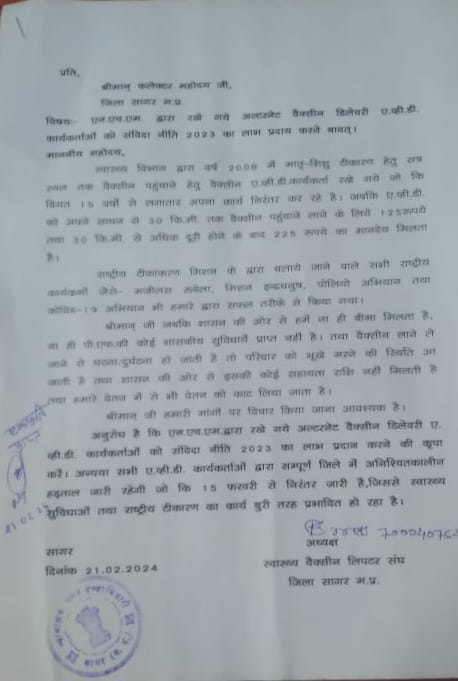 प्रति,
श्रीमान् कलेक्टर महोदय जी,
जिला सागर म.प्र.
विषयः- एन.एच.एम. द्वारा रखे गये अल्टरनेट वैक्सीन डिलेवरी ए.व्ही.डी.
कार्यकर्ताओं को संविदा नीति 2023 का लाभ प्रदाय करने बावत्।
माननीय महोदय,
स्वास्थ्य विभाग द्वारा वर्ष 2008 में मातृ-शिशु टीकाकरण हेतु सत्र
स्थल तक वैक्सीन पहुंचाने हेतु वैक्सीन ए.व्ही.डी.कार्यकर्ता रखे गये जो कि
विगत 15 वर्षो से लगातार अपना कार्य निरंतर कर रहे है। जबकि ए.व्ही.डी.
को अपने साधन से 30 कि.मी. तक वैक्सीन पहुंचाने लाने के लिये 125रूपये
तथा 30 कि.मी. से अधिक दूरी होने के बाद 225 रूपये का मानदेय मिलता
है।
राष्ट्रीय टीकाकरण मिशन के द्वारा चलाये जाने वाले सभी राष्ट्रीय
कार्यकर्मो जैसे- मजीलस रूबेला, मिशन इन्द्रधनुष, पोलियो अभियान तथा
कोविड-19 अभियान भी हमारे द्वारा सफल तरीके से किया गया।
श्रीमान् जी जबकि शासन की ओर से हमें ना ही बीमा मिलता है,
ना ही पी.एफ.की कोई शासकीय सुविधायें प्राप्त नही है। तथा वैक्सीन लाने ले
जाने से घटना.दुर्घटना हो जाती है तो परिवार को भूखे मरने की स्थिति आ
जाती है तथा शासन की ओर से इसकी कोई सहायता राशि नही मिलती है
तथा हमारे वेतन में से भी वेतन को काट लिया जाता है।
श्रीमान् जी हमारी मांगों पर विचार किया जाना आवश्यक है।
अनुरोध है कि एन.एच.एम.द्वारा रखे गये अल्टरनेट वैक्सीन डिलेवरी ए.
व्ही.डी. कार्यकर्ताओं को संविदा नीति 2023 का लाभ प्रदान करने की कृपा
करें। अन्यथा सभी ए.व्ही.डी. कार्यकर्ताओं द्वारा सम्पूर्ण जिले में अनिश्चितकालीन
हड़ताल जारी रहेगी जो कि 15 फरवरी से निरंतर जारी है,जिससे स्वास्थ्य
सुविधाओं तथा राष्ट्रीय टीकारण का कार्य बुरी तरह प्रभावित हो रहा है।
अध्यक्ष
सागर
स्वास्थ्य वैक्सीन लिपटर संघ
दिनांक 21.02.2024
जिला सागर म.प्र.